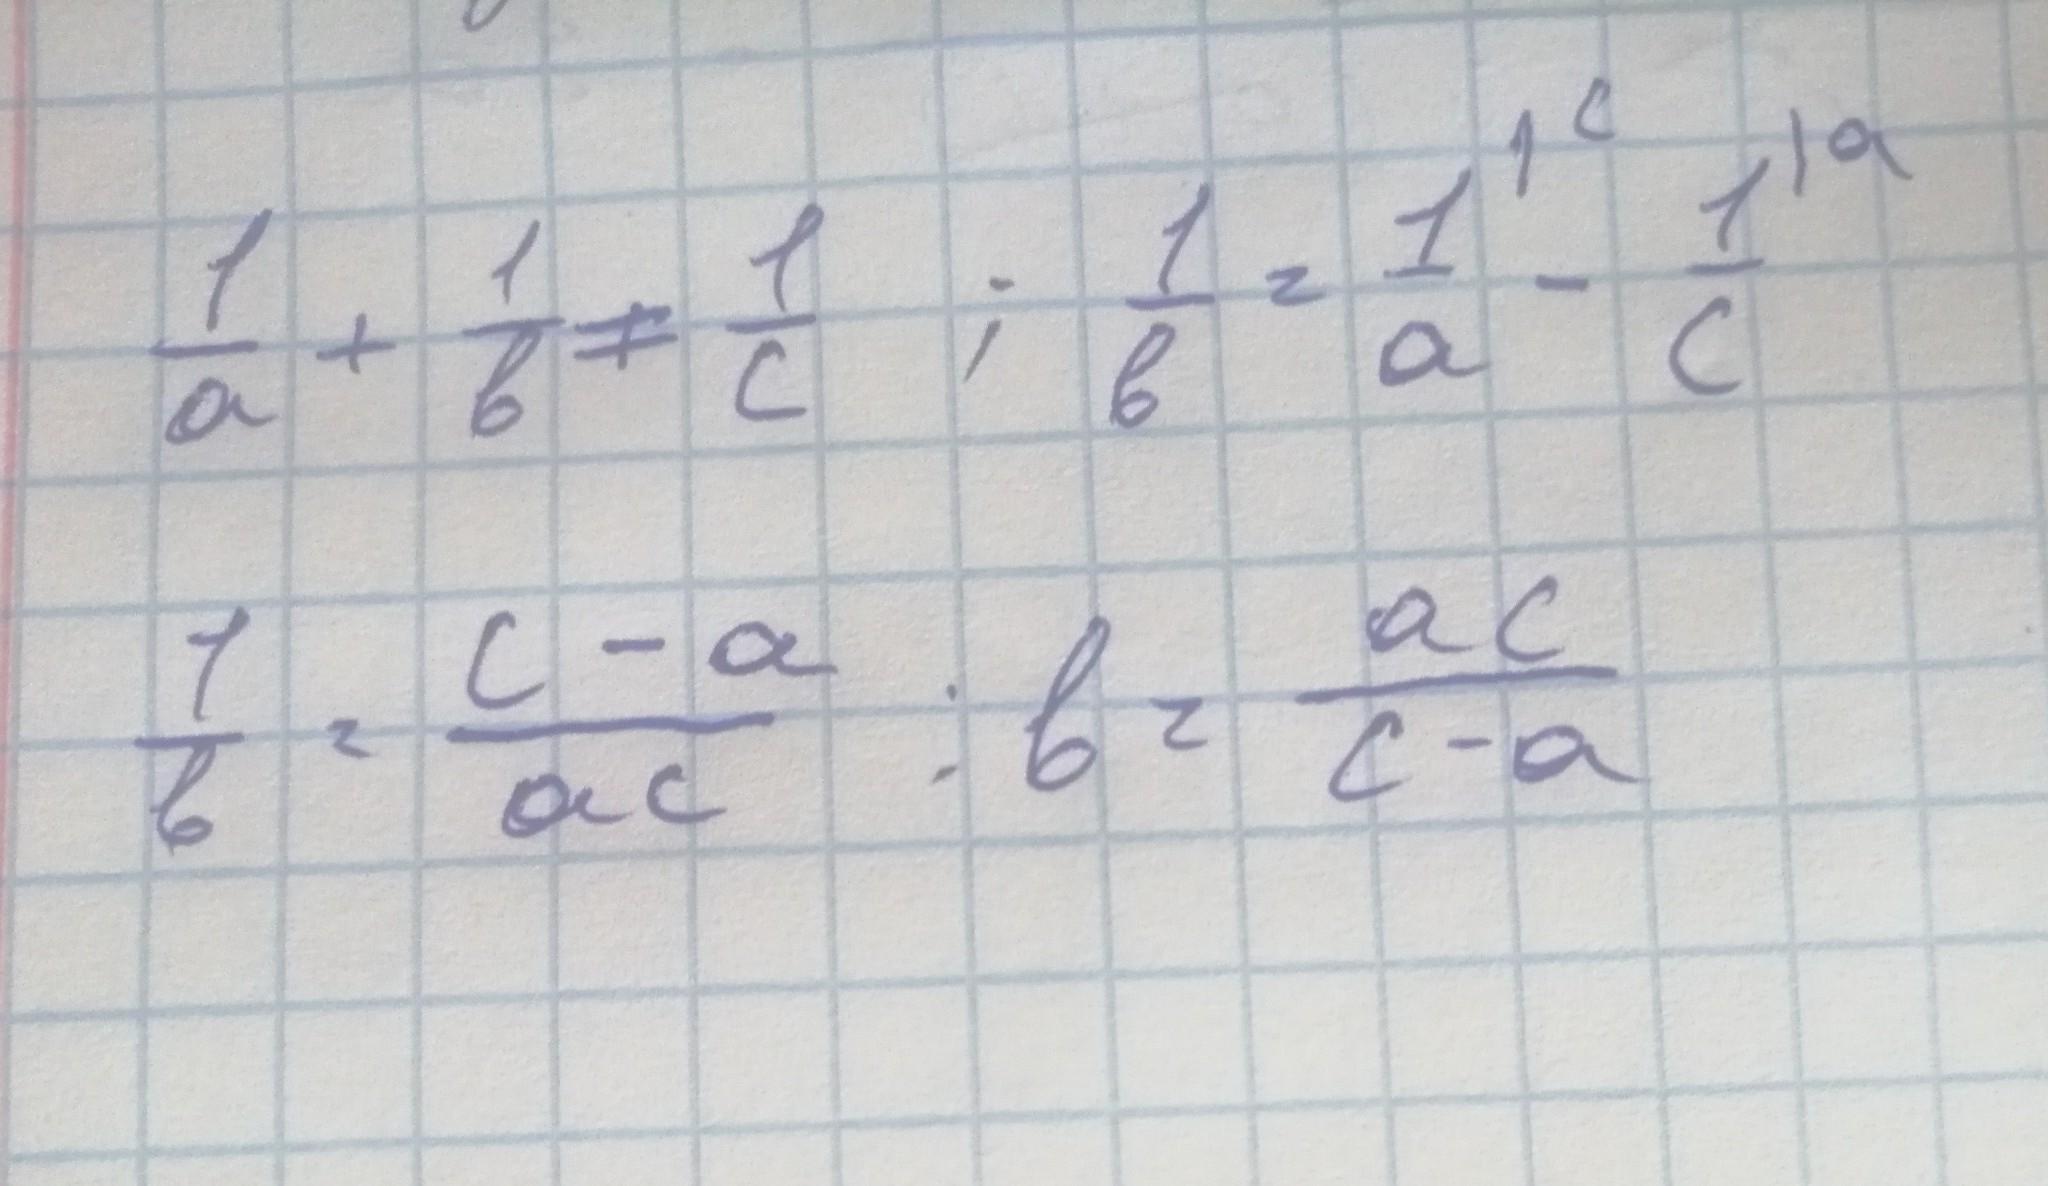 1/a + 1/b ≠ 1/c ; 1/b = 1/a |c - 1/c |a
1/b = c - a/ac ; b = ac/c - a